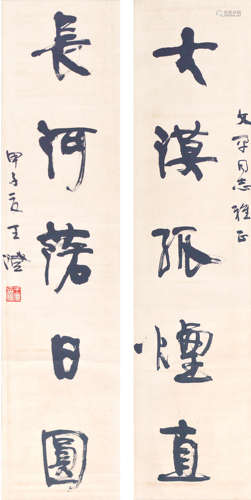 大漠孤煙直
同志雅正
長河落日圓
甲子夏王澄